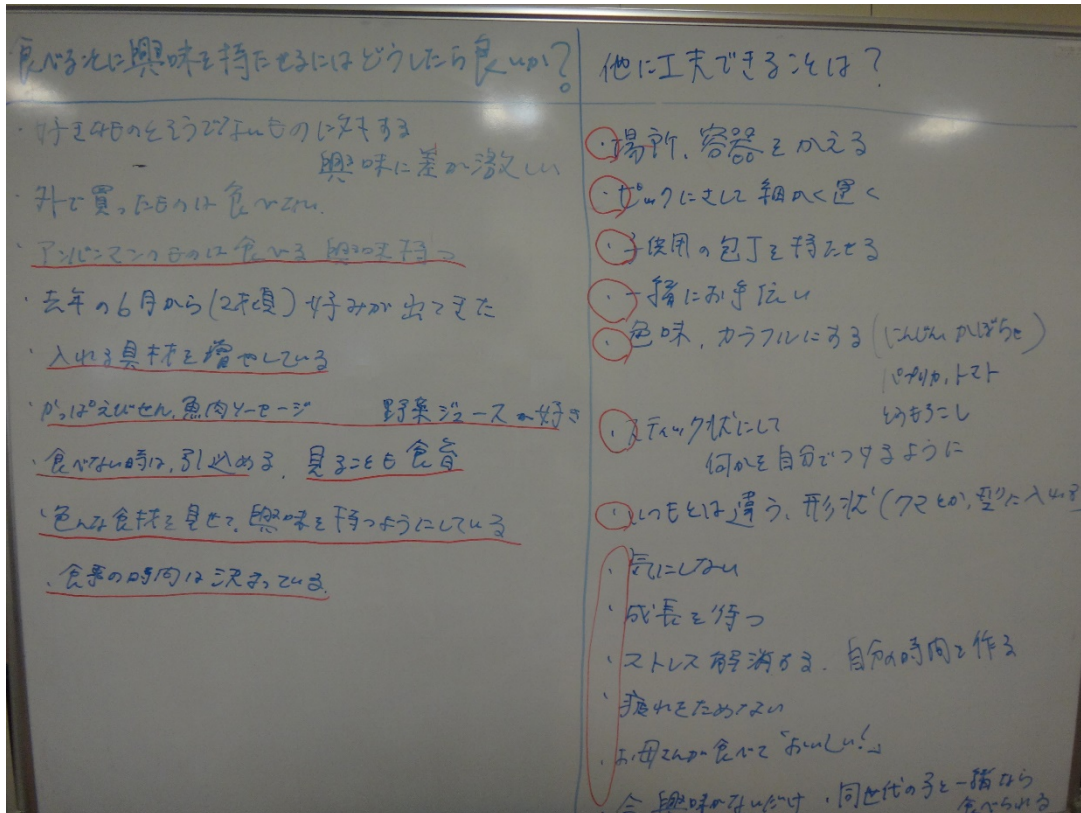 食べることに興味を持たせるにはどうしたら良いか?
・好きなものとそうでないものに対する
興味に差が激しい
・外で買ったものは食べない.
・アンパンマンのものは食べる 興味持つ
・去年の6月から(2才頃)好みが出てきた
・入れる具材を増やしている
・かっぱえびせん,魚肉ソーセージ 野菜ジュースが好き
・食べない時は,引込める. 見ることも食育
・色んな食材を見せて,興味を持つようにしている
・食事の時間は決まっている.
他に工夫できることは?
・場所,容器をかえる
・ピックにさして細かく置く
・子供用の包丁を持たせる
・一緒にお手伝い
・色味,カラフルにする(にんじん かぼちゃ)
パプリカ,トマト
とうもろこし
・スティック状にして
何かを自分でつけるように
・いつもとは違う,形状(クマとか,型に入れる
・気にしない
・成長を待つ
・ストレス解消する. 自分の時間を作る
・疲れをためない
・お母さんが食べて「おいしい!」
今 興味がないだけ ・同世代の子と一緒なら
食べられる